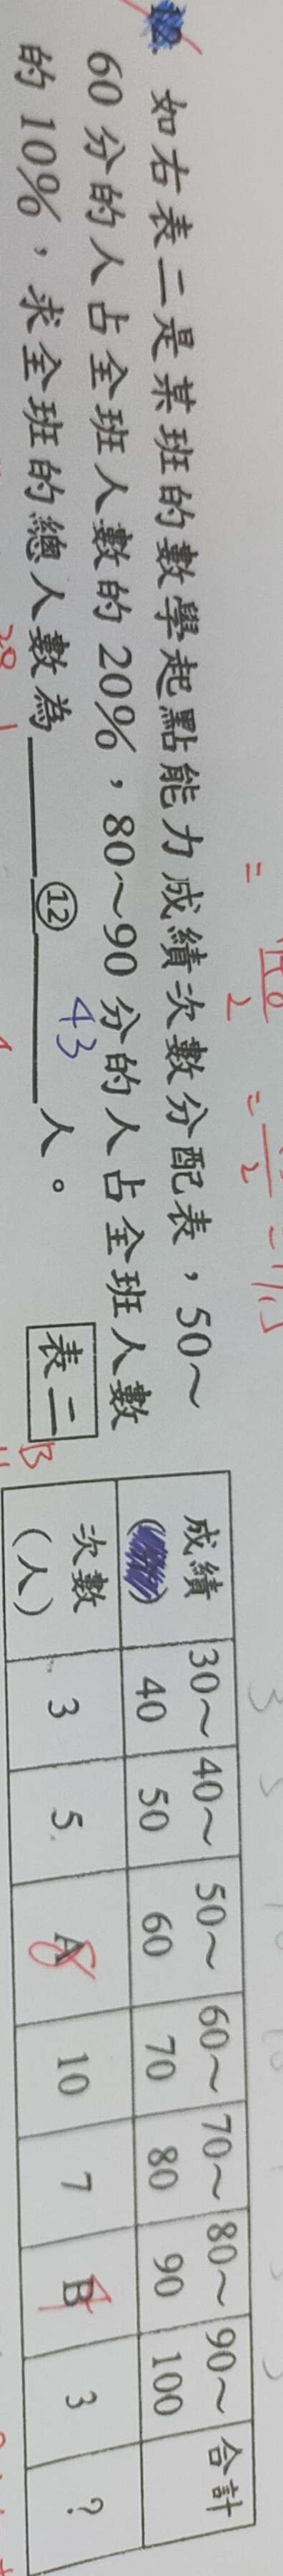 如右表二是某班的數學起點能力成績次數分配表，50～
60 分的人占全班人數的 20%，80～90 分的人占全班人數
的 10%，求全班的總人數為 ⑫ 43 人。
表二
成績 30～ 40～ 50～ 60～ 70～ 80～ 90～ 合計
40 50 60 70 80 90 100
次數 3 5 A 10 7 B 3 ?
(人)